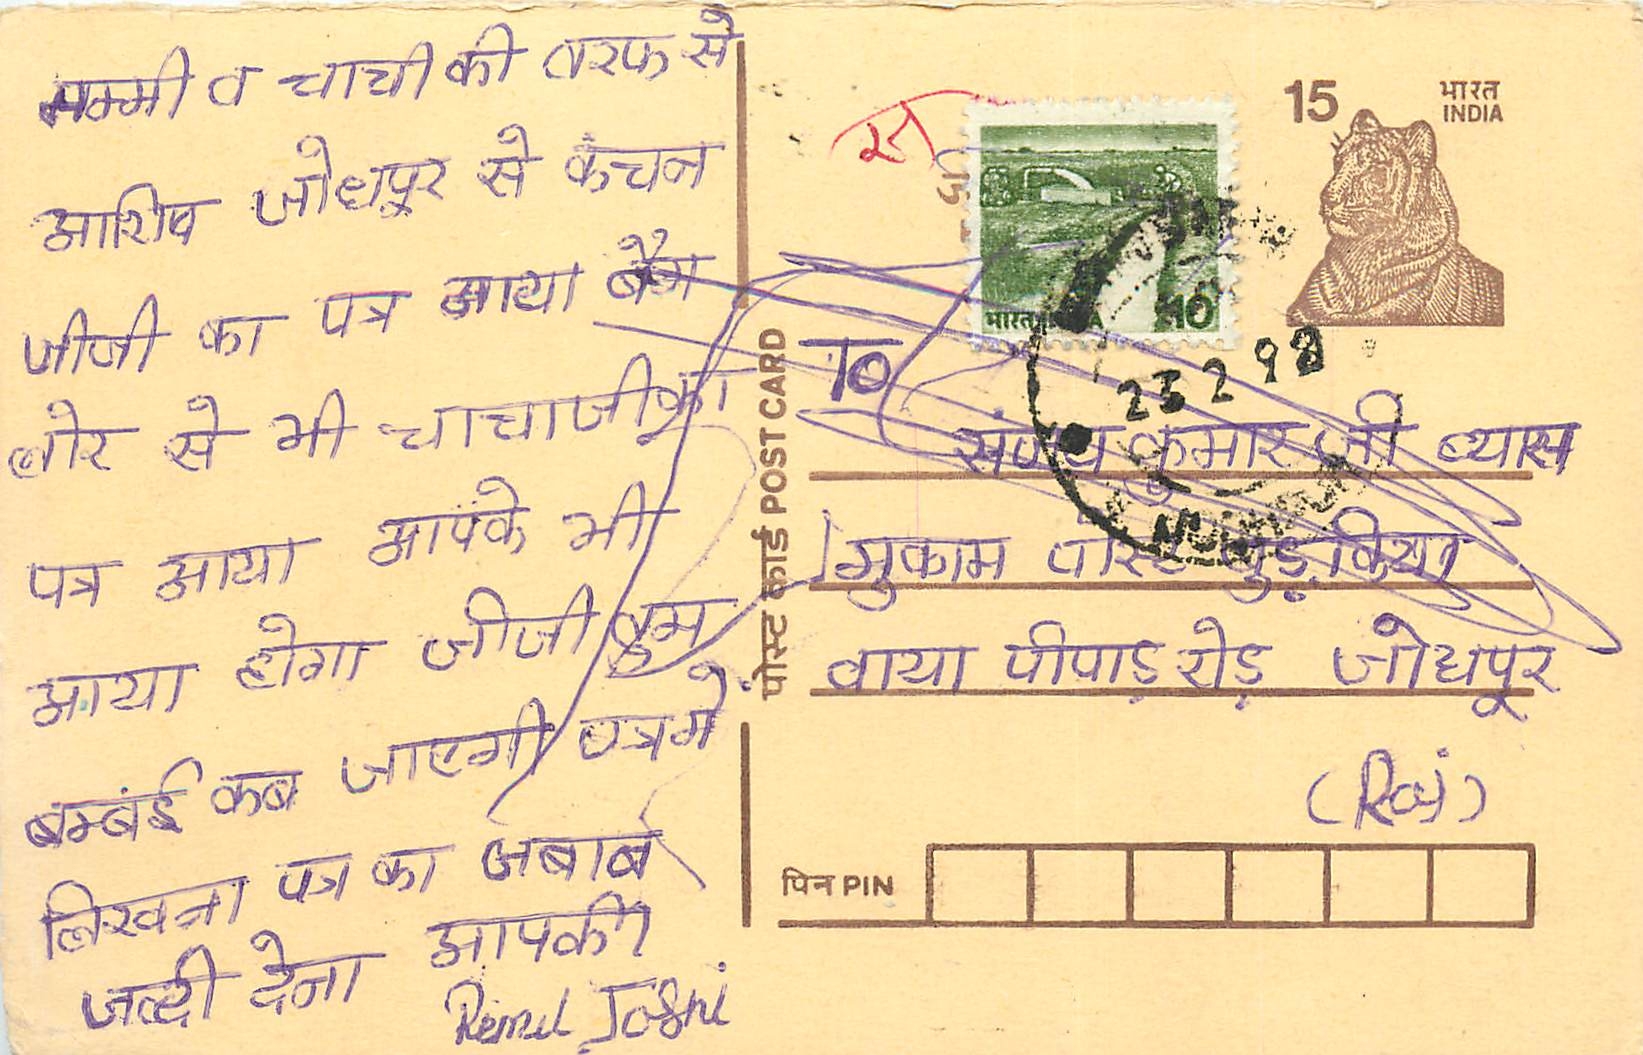 मम्मी व चाची की तरफ से
आशिष जोधपूर से कंचन
जीजी का पत्र आया बैंग
लोर से भी चाचाजी का
पत्र आया आपके भी
आया होगा जीजी तुम
बम्बंई कब जाएगी पत्र मे
लिखना पत्र का जबाब
जल्दी देना आपकी
Joshi
15 भारत
INDIA
भारत INDIA 10
23 2 98
पोस्ट कार्ड POST CARD
To
संजय कुमार जी व्यास
मुकाम पोस्ट
वाया पीपाड़ रोड़ जोधपूर
(Raj)
पिन PIN